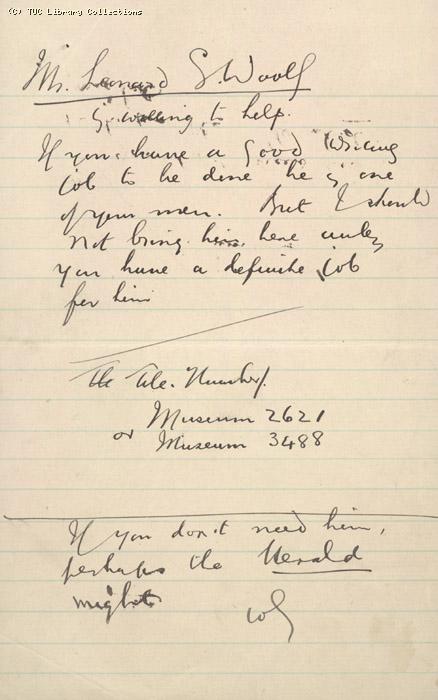 (C) TUC Library Collections
Mr. Leonard S. Woolf
is willing to help.
If you have a good writing
job to be done he is one
of your men. But I should
not bring him here unless
you have a definite job
for him
Tele. Number.
Museum 2621
or Museum 3488
If you don't need him,
perhaps the Herald
might